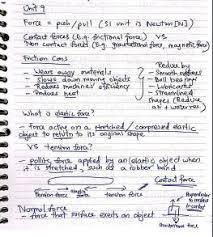 Unit 9
Force = push/pull (SI unit is Newton [N])
Contact forces (E.g. frictional force) VS
Non contact forces (E.g. gravitational force, magnetic force)
Friction Cons
- Wears away materials
- Slows down moving objects
- Reduces machines' efficiency
- Produces heat
Reduce by
- Smooth surfaces
- Ball bearings
- Lubricants
- Streamlined shapes (Reduce air + water res)
What is elastic force?
- force acting on a stretched / compressed elastic
object to return to its original shape
VS tension force?
- pulling force applied by an elastic object when
it is stretched, such as a rubber band
Contact force
tension force
tension force
Normal force
- force that surface exerts on an object
Perpendicular
to
contact
Gravitational force